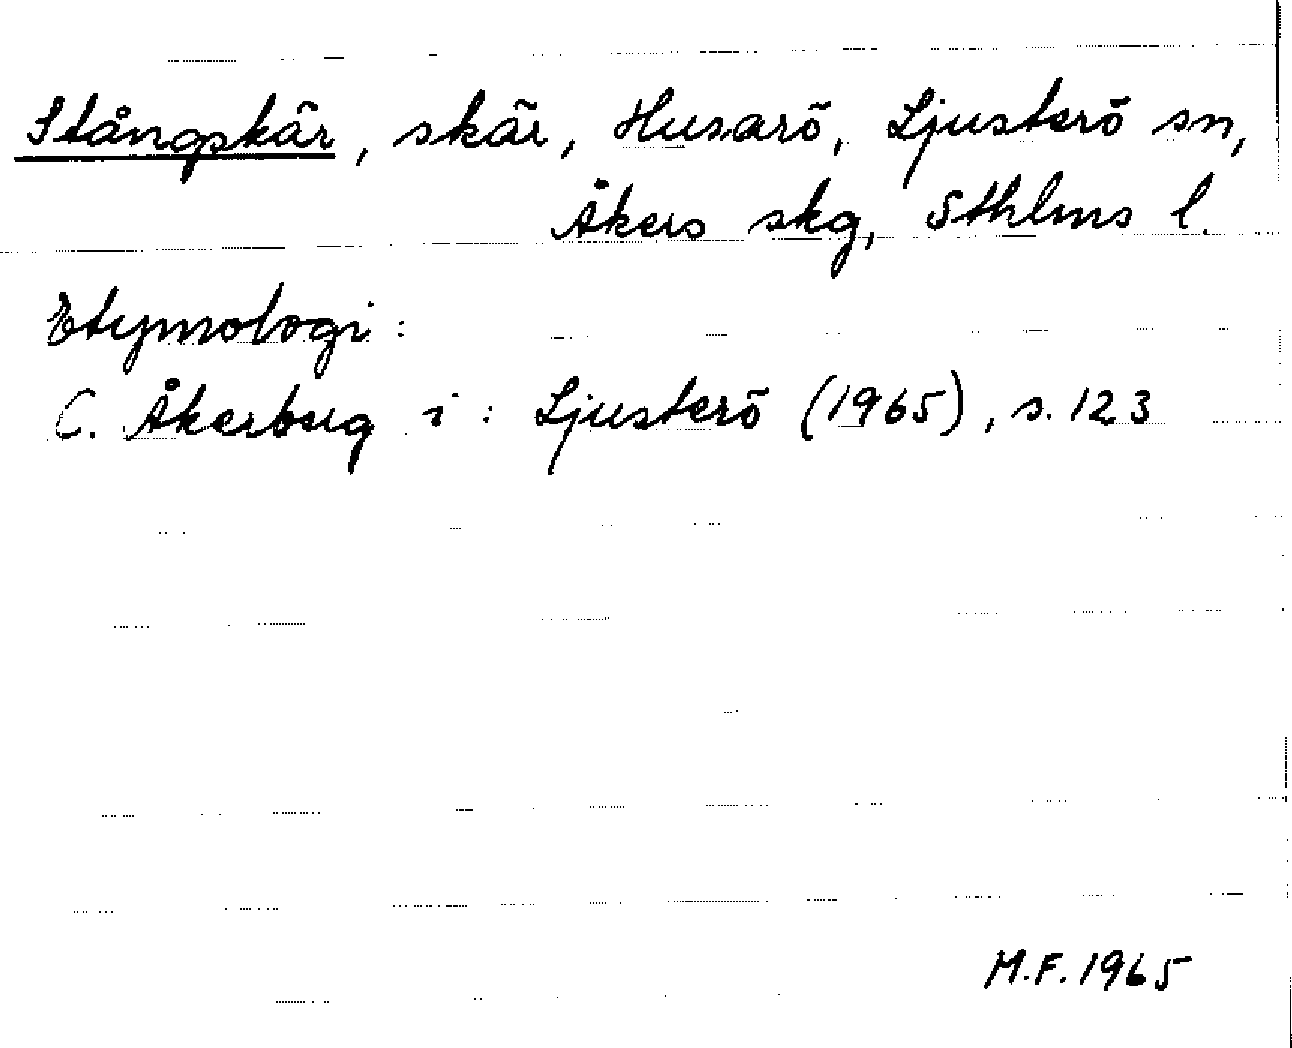 Stångskär, skär, Husarö, Ljusterö sn,
Åkers skg, Sthlms l.
Etymologi:
C. Åkerberg i: Ljusterö (1965), s. 123
M.F. 1965